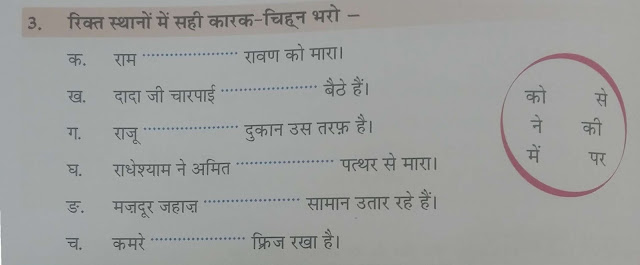 3. रिक्त स्थानों में सही कारक-चिह्न भरो –
क. राम ........................ रावण को मारा।
ख. दादा जी चारपाई ........................ बैठे हैं।
ग. राजू ........................ दुकान उस तरफ़ है।
घ. राधेश्याम ने अमित ........................ पत्थर से मारा।
ङ. मज़दूर जहाज़ ........................ सामान उतार रहे हैं।
च. कमरे ........................ फ्रिज रखा है।
को से
ने की
में पर